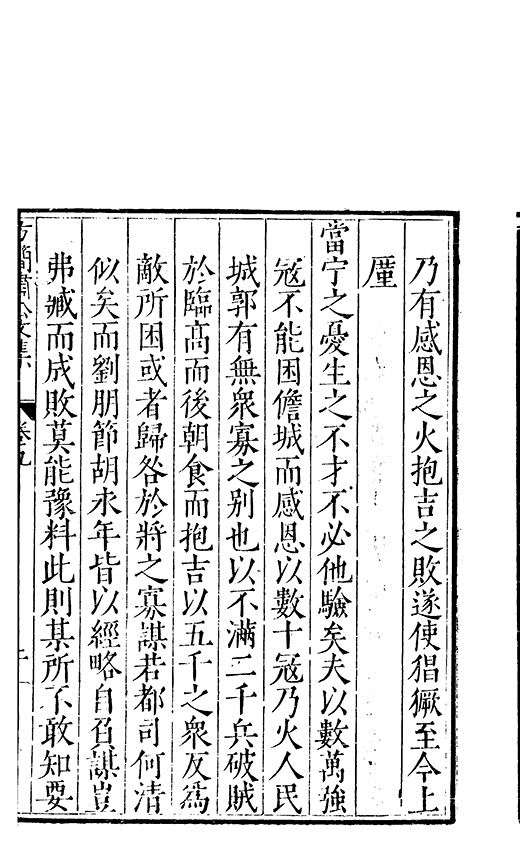 乃有感恩之火抱吉之敗遂使猖獗至今上
廑
當宁之憂生之不才不必他驗矣夫以數萬強
冦不能困儋城而感恩以數十冦乃火人民
城郭有無衆寡之别也以不滿二千兵破賊
於臨高而後朝食而抱吉以五千之衆反為
敵所困或者歸咎於將之寡謀若都司何清
似矣而劉朋節胡永年皆以經略自負謀豈
弗臧而成敗莫能豫料此則某所不敢知要
簡肅公文集
卷九